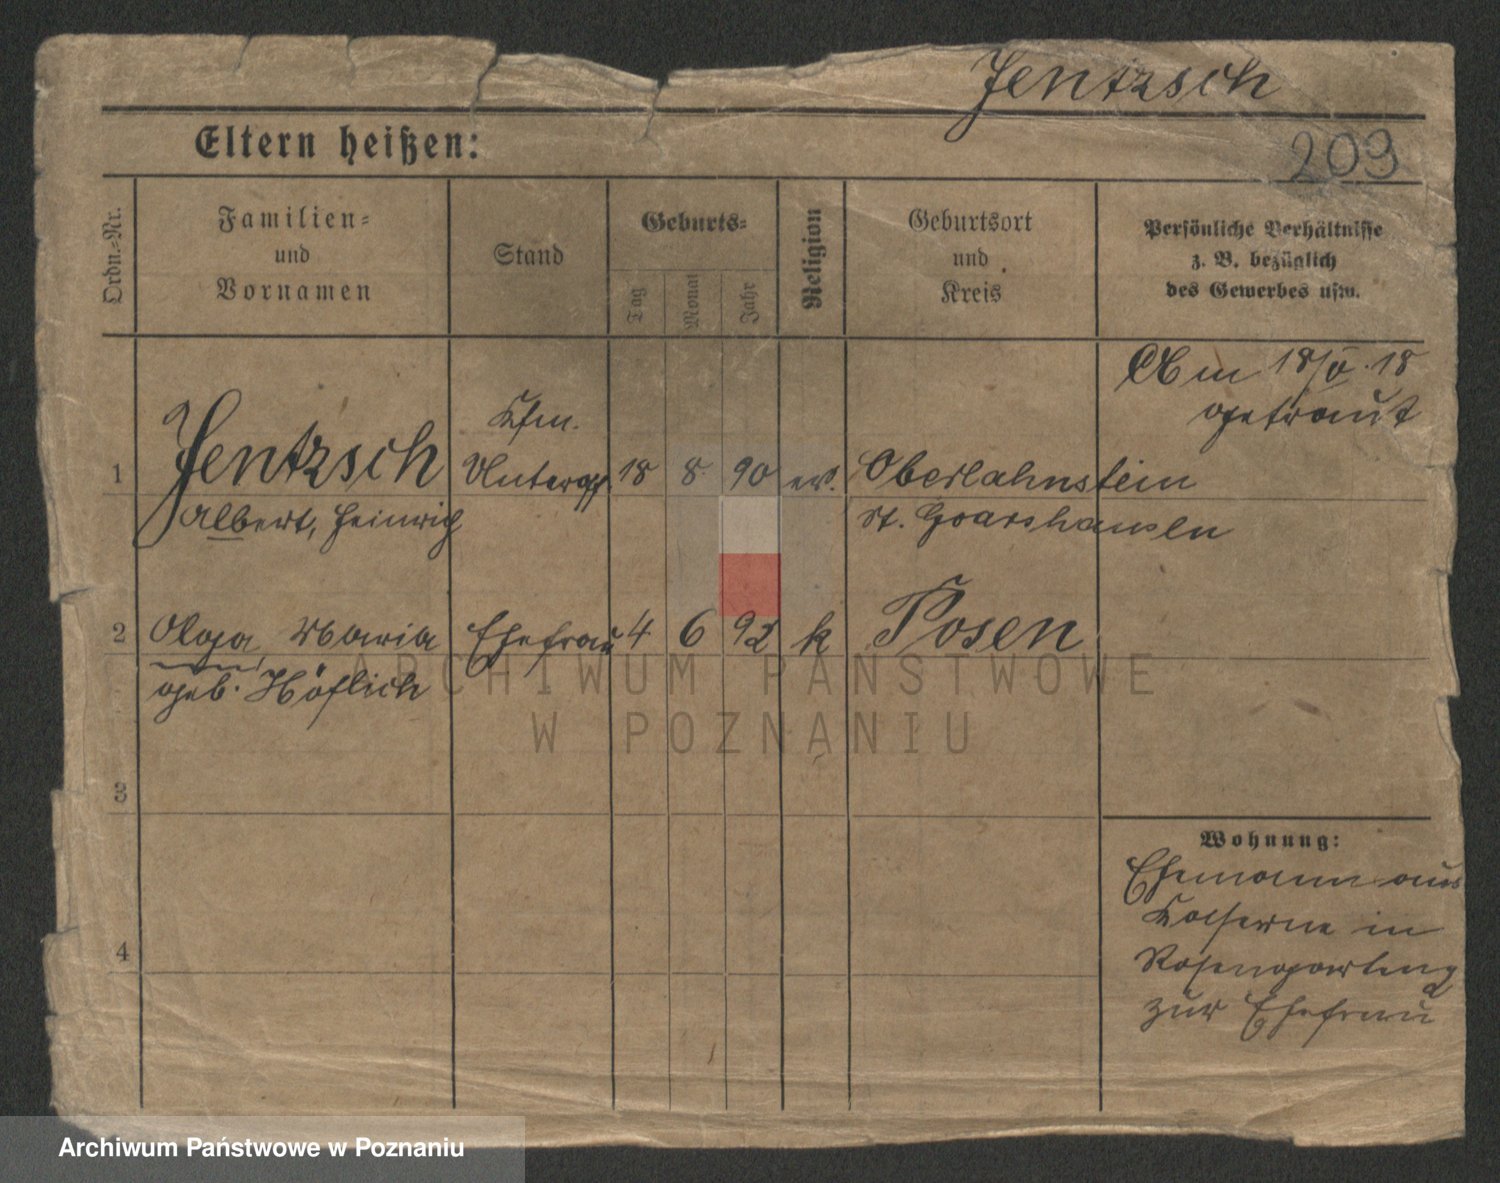 Jentzsch
Eltern heißen:
209
Ordn.-Nr.
Familien-
und
Vornamen
Stand
Geburts-
Tag
Monat
Jahr
Religion
Geburtsort
und
Kreis
Persönliche Verhältnisse
z. B. bezüglich
des Gewerbes usw.
Am 18/V. 18
getraut
Kfm.
1 Jentzsch Unteroff. 18 8. 90 ev. Oberlahnstein
Albert, Heinrich St. Goarshausen
2 Olga, Maria Ehefrau 4 6 92 k Posen
geb. Höflich
ARCHIWUM PAŃSTWOWE
W POZNANIU
3
Wohnung:
Ehemann aus
Kaserne in
4
zur Ehefrau
Archiwum Państwowe w Poznaniu